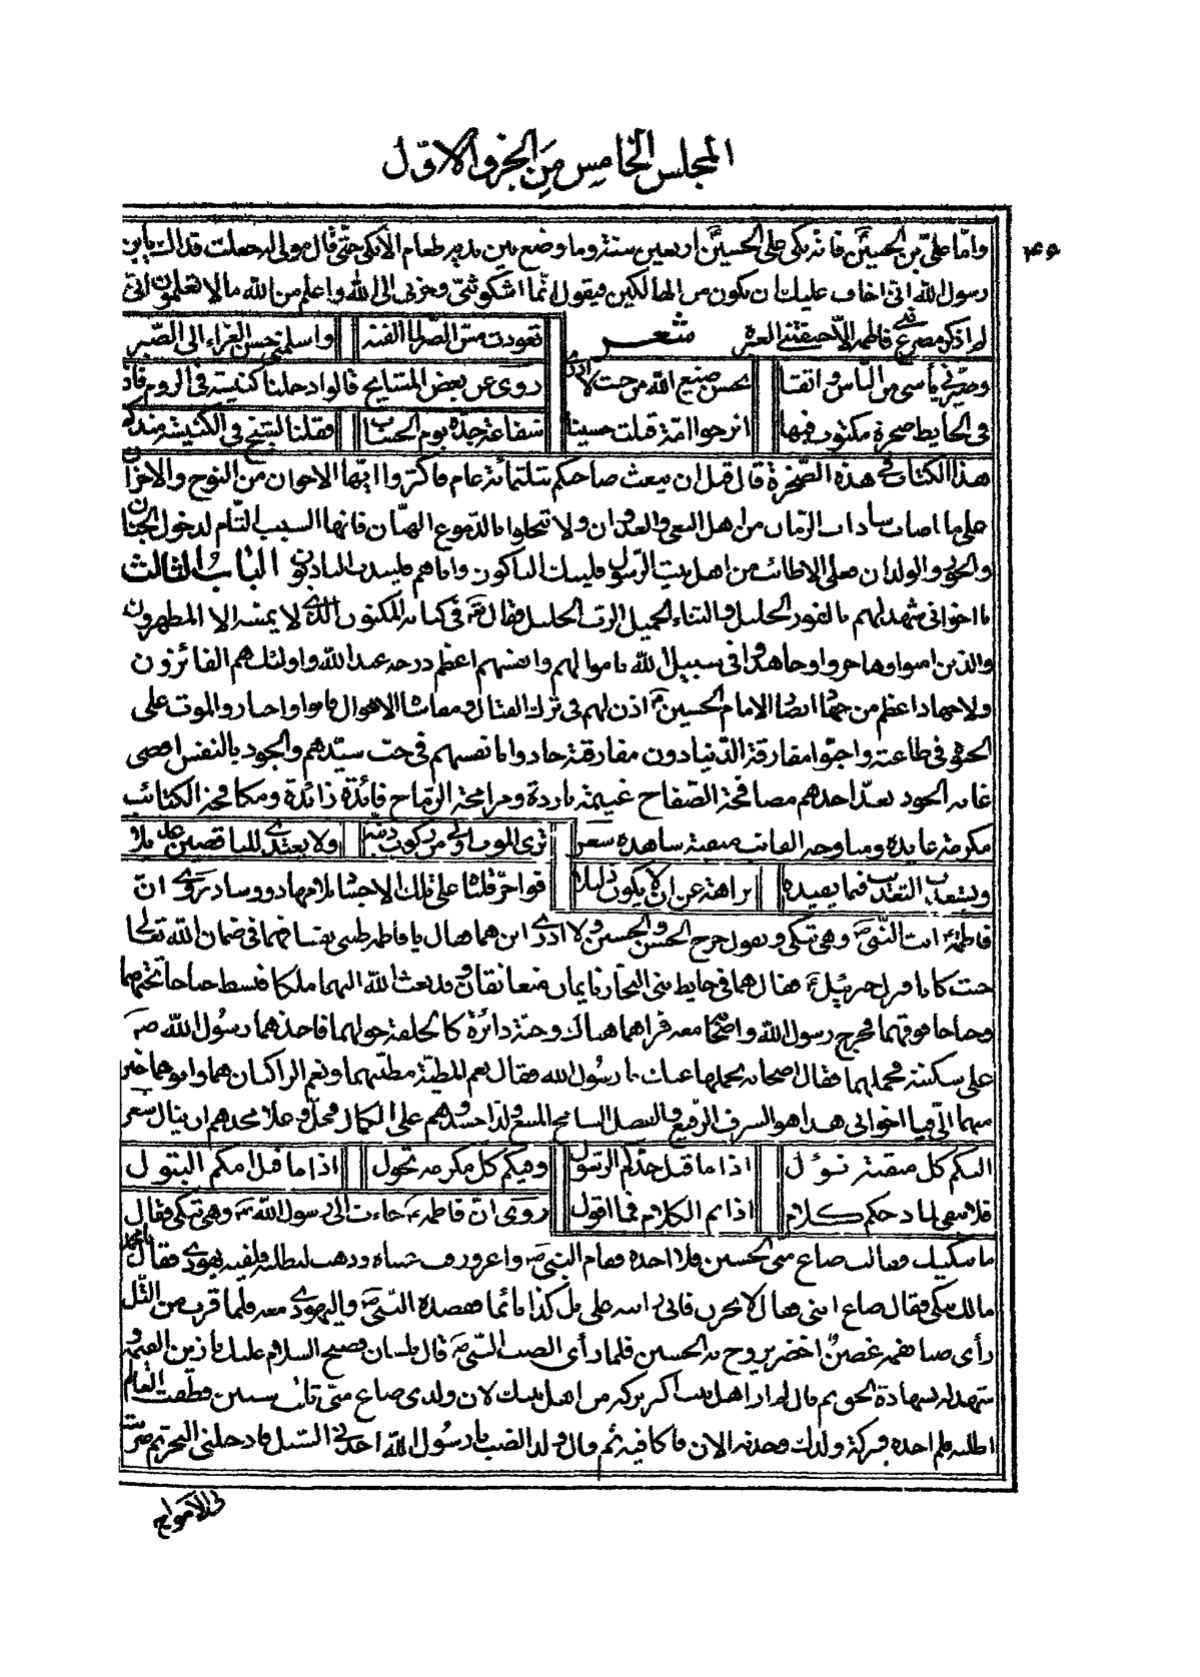 المجلس الخامس من الجزو الاوّل
۴۵
وامّا علىّ بن الحسينّ فانه بكى على الحسينّ اربعين سنة وما وضع بين يديه طعام الّا بكى حتّى قال مولى له جعلت فداك يابن
رسول الله انى اخاف عليك ان تكون من الهالكين فيقول انّما اشكو بثّى وحزنى الى الله واعلم من الله ما لا تعلمون انى
لم اذكر مصرع بنى فاطمه الّا خنقتنى العبرة شعر تعودت مسّ الضّر الفته واسلمنى حسن العزاء الى الصّبر
وصيّرنى يأسى من النّاس واثقا بحسن صنيع الله من حيث لا ادرى روى عن بعض المشايخ قالوا دخلنا كنيسة فى الروم فاذا
فى الحايط صخرة مكتوب فيها اترجوا امّة قتلت حسينا شفاعة جدّه يوم الحساب فقلنا لشيخ فى الكنيسة منذكم
هذا الكتاب فى هذه الصّخرة قال قبل ان يبعث صاحبكم بثلثمائة عام فاكثروا ايّها الاخوان من النوح والاحزان
على ما اصاب سادات الزمان من اهل البغى والعدوان ولا تبخلوا بالدّموع الهتّان فانها السبب التّام لدخول الجنان
والحور والولدان فعلى الاطائب من اهل بيت الرّسول فليبك الباكون واياهم فليندب النادبون الباب الثالث
يا اخوانى شهد لهم بالفوز الجليل والثناء الجميل الربّ الجليل فقال فى كتابه المكنون الذى لا يمسّه الا المطهرون
والذين امنوا وهاجروا وجاهدوا فى سبيل الله باموالهم وانفسهم اعظم درجة عند الله واولئك هم الفائزون
ولا جهاد اعظم من جهاد انصار الامام الحسين اذن لهم فى ترك القتال ومقاساة الاهوال فابوا واختاروا الموت على
الحيوة فى طاعته واحبّوا مفارقة الدّنيا دون مفارقته جادوا بانفسهم فى حبّ سيّدهم والجود بالنفس اقصى
غاية الجود يعدّ احدهم مصافحة الصّفاح غنيمة باردة ومرامحة الرّماح فائدة زائدة ومكافحة الكتائب
مكرمة عايدة شعر يرى الموت اولى من ركوب دنيّة ولا يغتدى للناقصين عديلا
ويستعذب التعذيب فيما يفيده نزاهته عن ان يكون ذليلا فواحرّ قلباه على تلك الاجساد روى انّ
فاطمة اتت النّبى وهى تبكى وتقول خرج الحسن والحسين ولا ادرى اين هما فقال يا فاطمة طيبى نفسا فهما فى ضمان الله تعالى
حيث كانا فنزل جبرئيل فقال هما فى حايط بنى النجار نايمان متعانقان وقد بعث الله اليهما ملكا فبسط جناحا تحتهما
وجناحا فوقهما فخرج رسول الله واصحابه معه فراهما هناك وحيّة دائرة كالحلقة حولهما فاخذهما رسول الله
على منكبيه فحملهما فقال اصحابه نحملهما عنك يا رسول الله فقال نعم المطيّة مطيّتهما ونعم الراكبان هما وابوهما خير
منهما فيا اخوانى هذا هو الشرف الرّفيع والفضل الشامخ المنيع شعر
اليكم كل منقبة تؤل اذا ما قيل جدّكم الرّسول وفيكم كل مكرمة تجول اذا ما قيل امكم البتول
فلا يبقى لمادحكم كلام اذا تم الكلام فما اقول روى انّ فاطمة جاءت الى رسول الله وهى تبكى فقال
ما يبكيك فقالت ضاع منّى الحسين فلا اجده فقام النبى واغرورقت عيناه وذهب ليطلبه فلقيه يهودى فقال يا محمد
مالك تبكى فقال ضاع ابنى فقال لا تحزن فانى رايته على تل كذا نائما فقصده النّبى واليهودى معه فلما قرب من التّل
رأى ضبا بفمه غصن اخضر يروح به الحسين فلما رأى الضب النّبى قال بلسان فصيح السلام عليك يا زين القيمة و
شهد له بشهادة الحق ثم قال لم ار اهل بيت اكثر بركة من اهل بيتك لان ولدى ضاع منّى ثلث سنين فطفت العالم
اطلبه فلم اجده وببركة ولدك وجدته الان فاكافيه ثم قال ولد الضب يا رسول الله اخذنى السّيل فادخلنى البحر ثم ضربت
بى الامواج